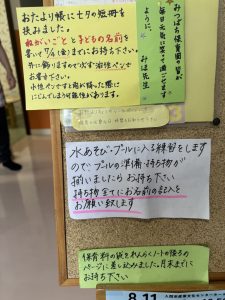 おたより帳に七夕の短冊を
挟みました。
ねがいごとと子どもの名前を
書いて 7/4(金)までにお持ち下さい。
外に飾りますので必ず油性ペンで
お書き下さい。
水性ペンですと雨が降った際に
にじんでしまう可能性があります。
みつばち保育園の皆が
毎日元気に笑って過ごせます
ように。
水あそび・プールに入る練習をします
ので、プールの準備・持ち物が
揃いましたらお持ち下さい
持ち物全てにお名前の記入を
お願い致します
保育料の袋をれんらくノートの後ろの
ページに差し込みました。月末までに
お持ち下さい
8.11